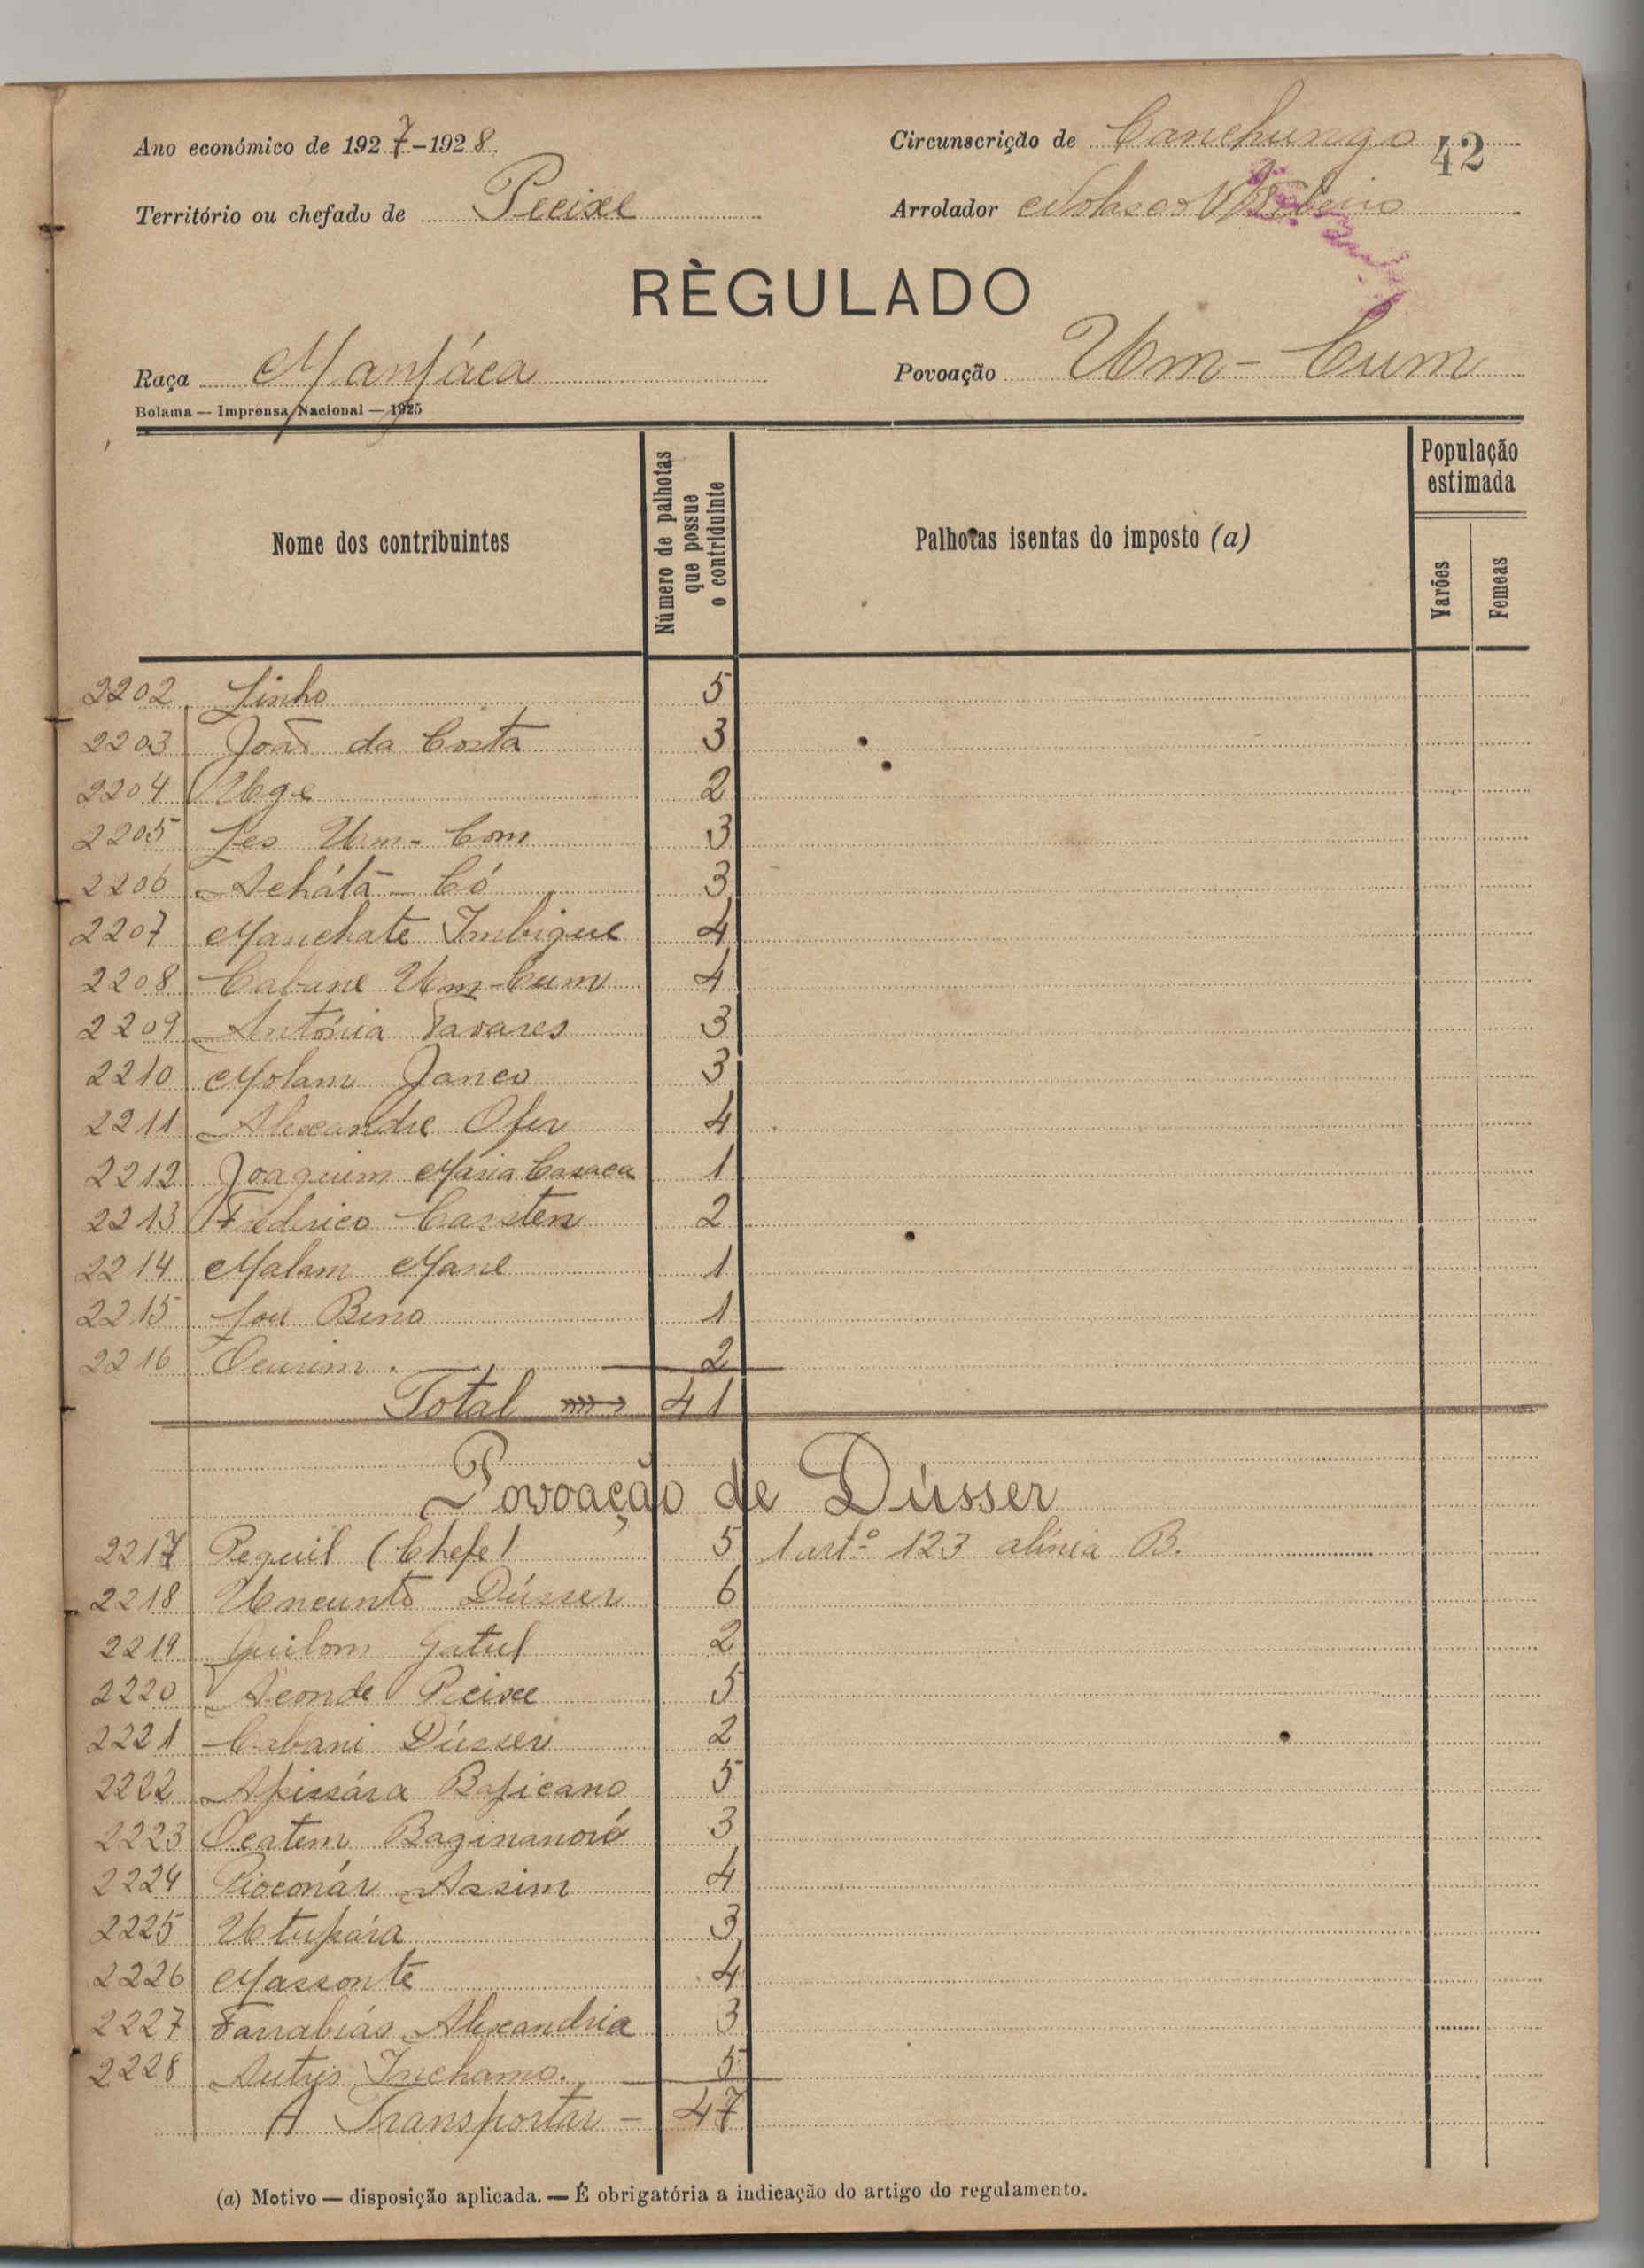 Ano económico de 1927-1928.
Circunscrição de Canchungo 42
Território ou chefado de Pecixe
Arrolador Ribeiro
RÈGULADO
Raça Manjáca
Povoação Um-Cum
Bolama — Imprensa Nacional — 1925
Nome dos contribuintes
Número de palhotas que possue o contriduinte
Palhotas isentas do imposto (a)
População estimada
Varões
Femeas
2202 Linho 5
2203 João da Costa 3
2204 Uge 2
2205 Les Um-Com 3
2206 Achátã-Có 3
2207 Manchate Imbigue 4
2208 Cabane Um-Cum 4
2209 Antónia Tavares 3
2210 Molam Janco 3
2211 Alexandre Ofer 4
2212 Joaquim Maria 1
2213 Frederico Carsten 2
2214 Malam Mane 1
2215 Bena 1
2216 Ocurim. 2
Total 41
Povoação de Dússer
2217 Pequil (Chefe) 5 1 artº 123 alínia B.
2218 Uncunto Dússer 6
2219 Quilom Gatul 2
2220 Aconde Pecixe 5
2221 Cabani Dússer 2
2222 Apissára Bajicano 5
2223 Ocatem 3
2224 Assim 4
2225 Utupára 3
2226 Massonte 4
2227 Farrabiás Alexandria 3
2228 Inchamo. 5
A Transportar - 47
(a) Motivo — disposição aplicada. — É obrigatória a indicação do artigo do regulamento.